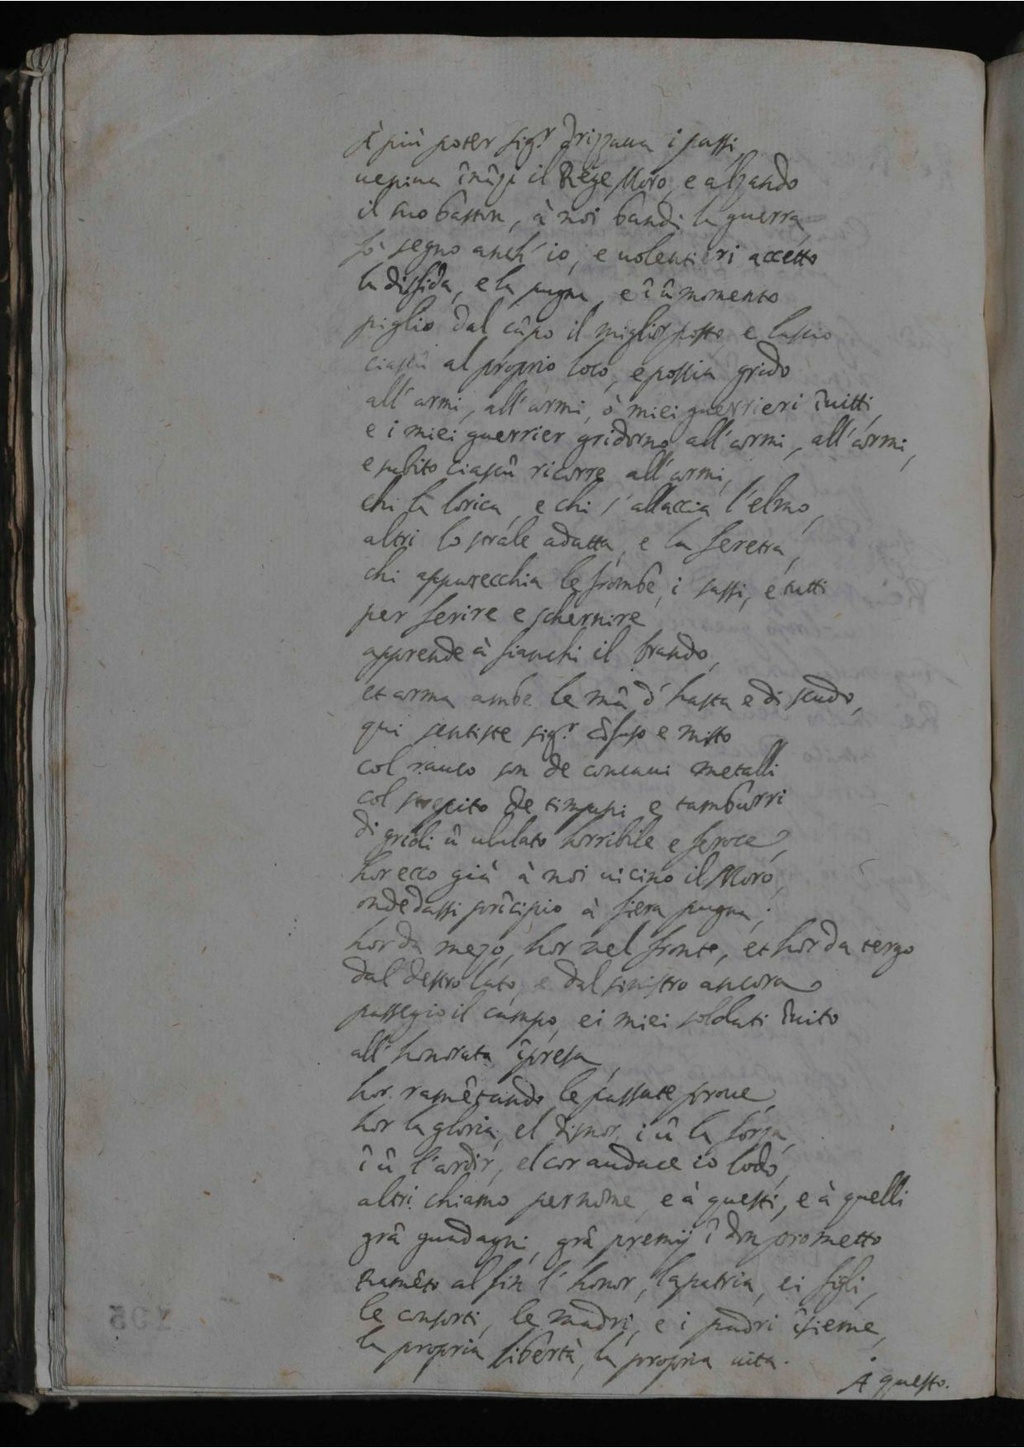 A più poter sig.r drizzava i passi
veniva î nã il Rege Moro, e alzando
il suo baston, à noi bandì la guerra,
fò segno anch' io, e volentieri accetto
la disfida, e la pugna, e î ũ momento
piglio dal cãpo il miglior posto e lascio
ciascũ al proprio loco, e poscia grido
all' armi, all' armi, ò miei guerrieri invitti,
e i miei guerrier gridorno all' armi, all' armi,
e subito ciascũ ricorre all' armi,
chi la lorica, e chi s' allaccia l' elmo,
altri lo strale adatta, e la feretra,
chi apparecchia le frombe, i sassi, e tutti
per ferire e schernire
apprende à fianchi il brando,
et arma ambe le mã d' hasta e di scudo,
qui sentiste sig.r cõfuso e misto
col rauco son de concavi metalli
col strepito de timpani e tamburri
di gridi ũ ululato horribile e feroce,
hor ecco già à noi vicino il Moro,
onde dassi prîcipio à fiera pugna;
hor da mezo, hor nel fronte, et hor da tergo
dal destro lato, e dal sinistro ancora
passegio il campo, ei miei soldati invito
all' honorata îpresa,
hor ramêtando le passate prove,
hor la gloria, el timor, i ũ la forza,
î ũ l' ardir, el cor audace io lodo,
altri chiamo per nome, e à questi, e à quelli
grã guadagni, grã premij î don prometto
ramêto al fin l' honor, la patria, ei figli,
le consorti, le madri, e i padri îsieme,
la propria libertà, la propria vita.
A questo.
105